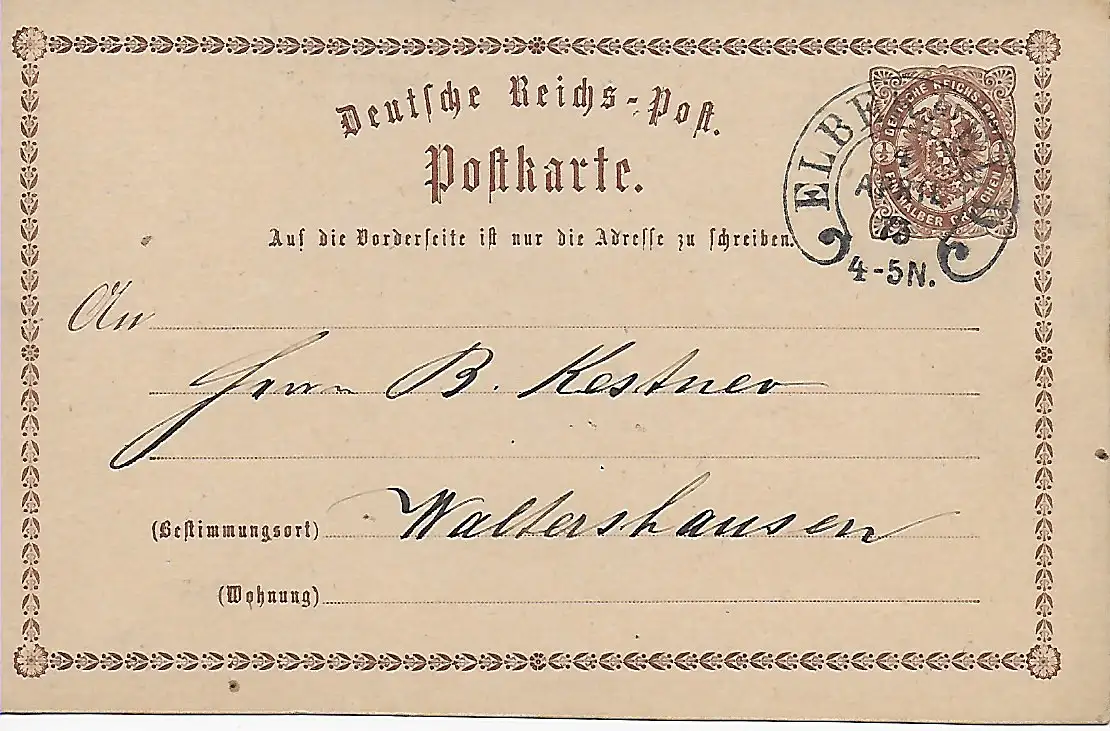 Deutsche Reichs-Post.
Postkarte.
Auf die Vorderseite ist nur die Adresse zu schreiben.
DEUTSCHE REICHS-POST
EIN HALBER GROSCHEN
75
4-5N.
An
Herrn B. Kestner
(Bestimmungsort) Waltershausen
(Wohnung)